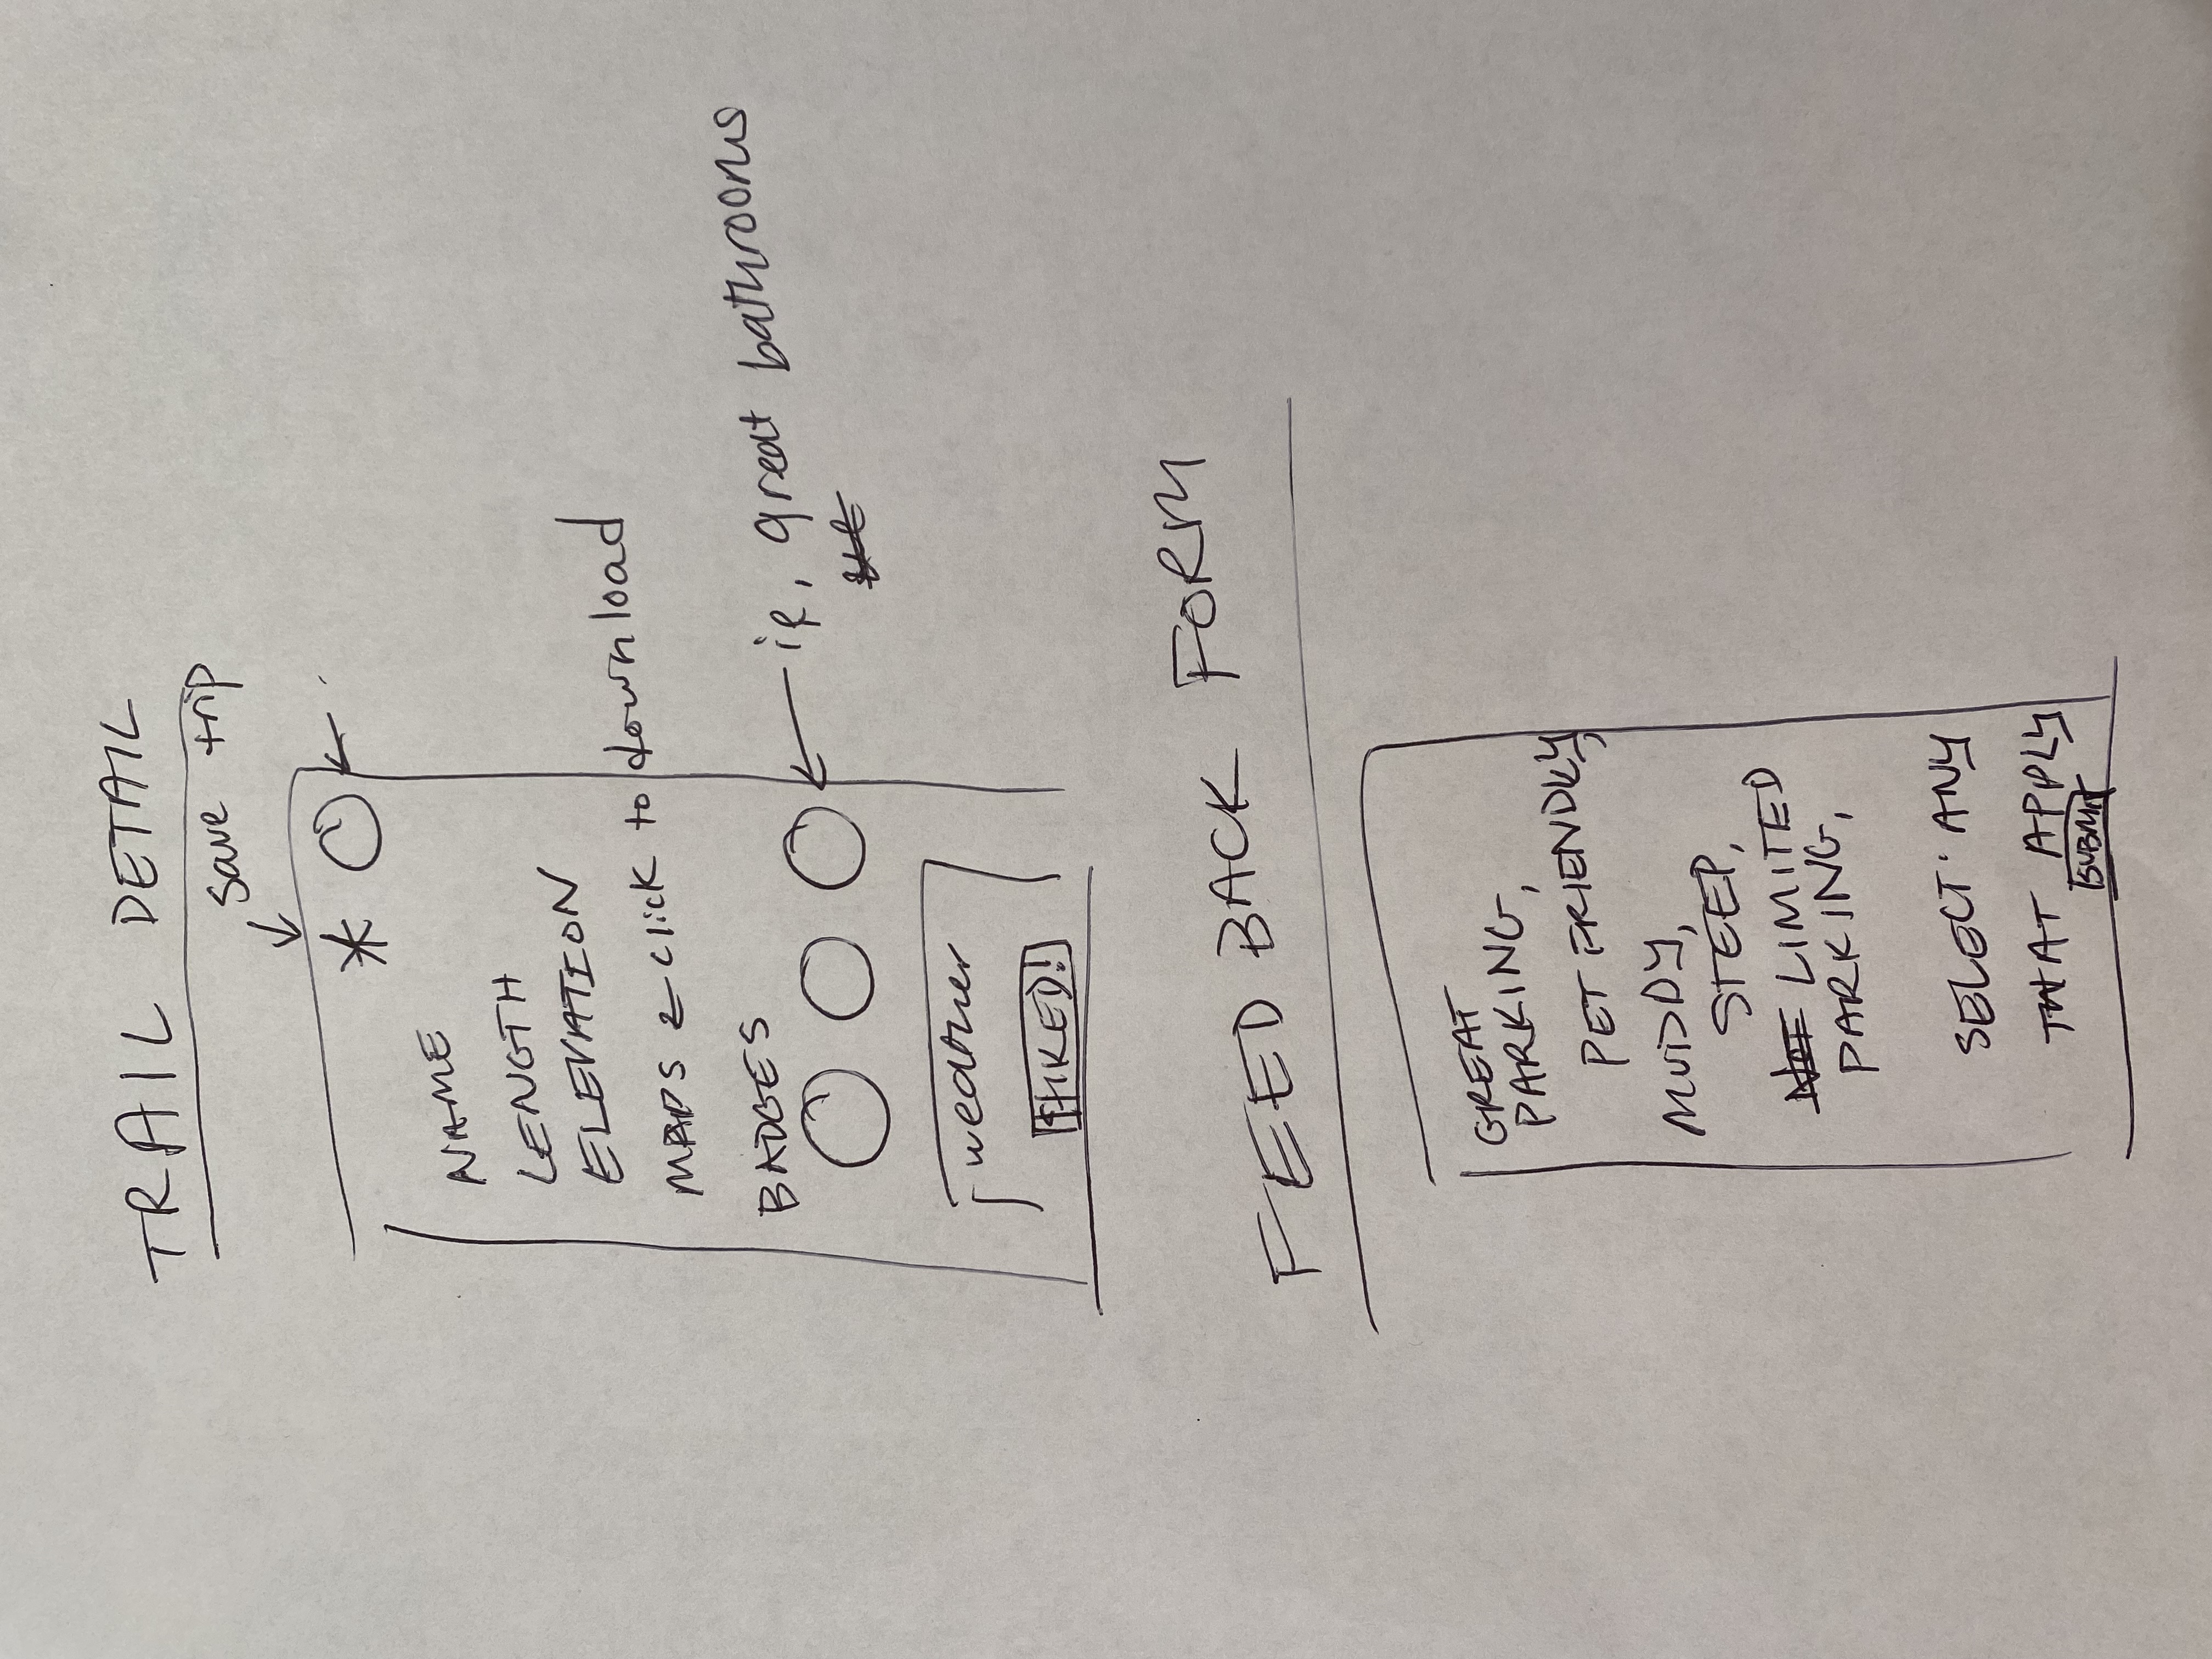 TRAIL DETAIL
save trip
NAME
LENGTH
ELEVATION
MAPS ← click to download
BADGES
← ie, great bathrooms
weather
HIKED!
FEEDBACK FORM
GREAT
PARKING,
PET FRIENDLY,
MUDDY,
STEEP,
LIMITED
PARKING,
SELECT ANY
THAT APPLY
SUBMIT